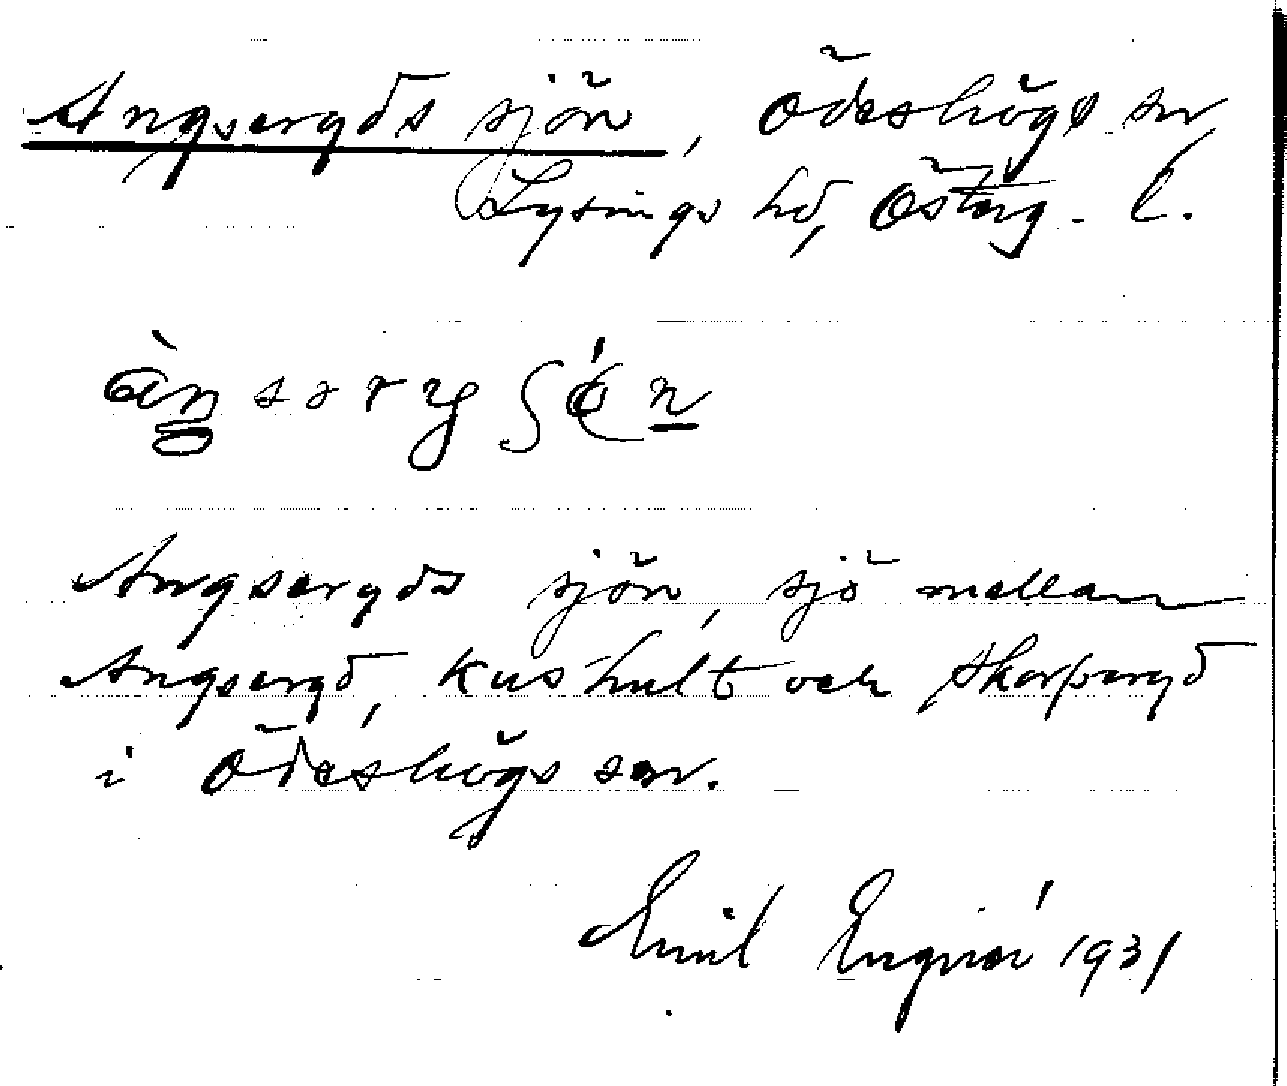 Angseryds sjön, Ödeshögs sn,
Lysings hd, Österg. l.
Angseryds sjön, sjö mellan
Angseryd, Kushult och Skorperyd
i Ödeshögs sn.
Emil 1931